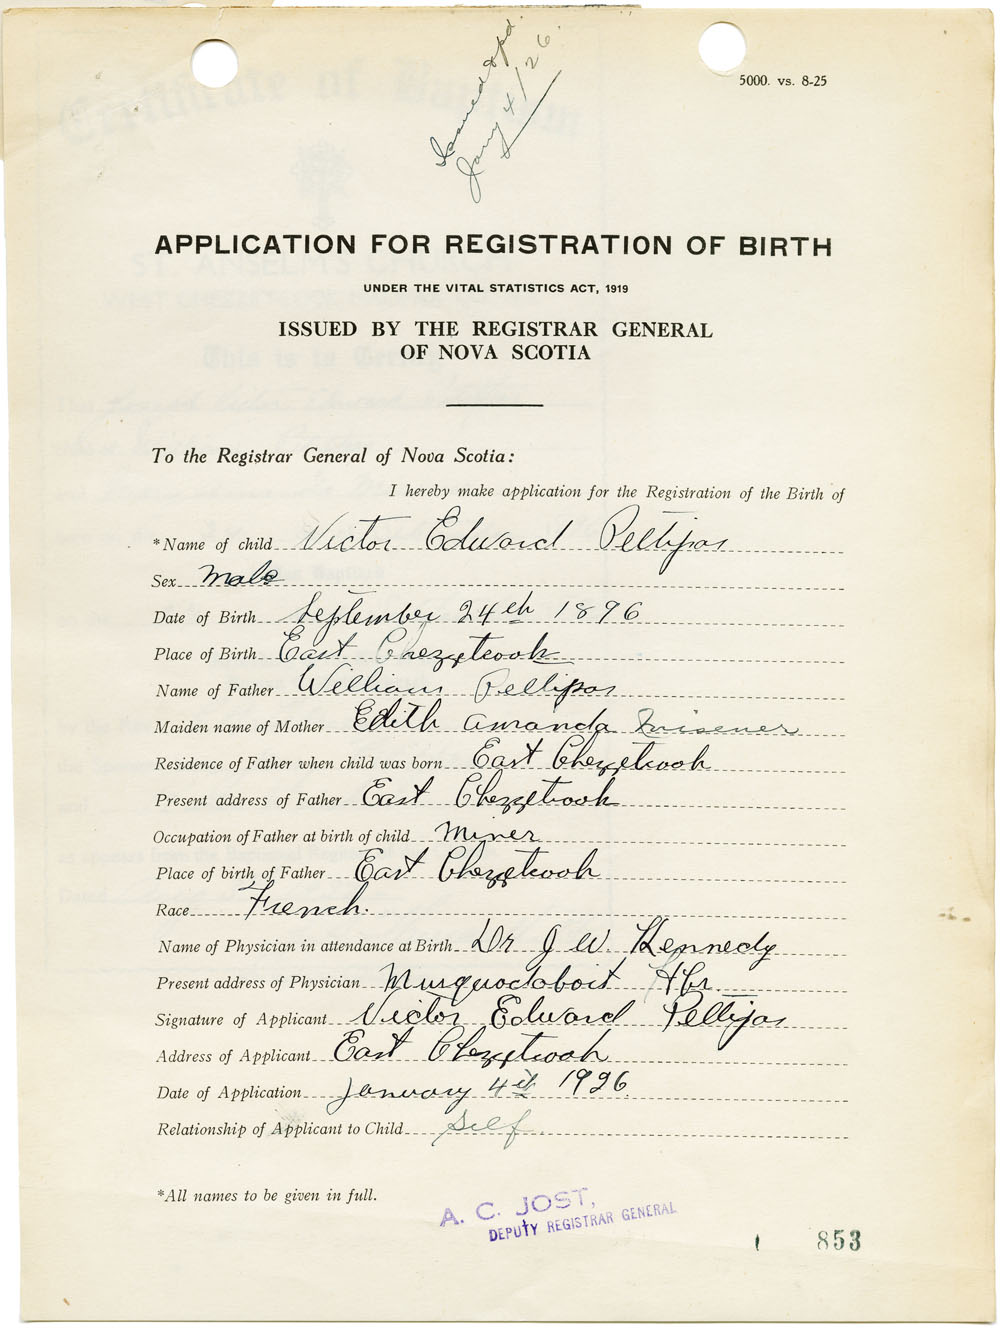 Issued & pd.
Jany 4/26.
5000. vs. 8-25
APPLICATION FOR REGISTRATION OF BIRTH
UNDER THE VITAL STATISTICS ACT, 1919
ISSUED BY THE REGISTRAR GENERAL
OF NOVA SCOTIA
To the Registrar General of Nova Scotia:
I hereby make application for the Registration of the Birth of
*Name of child Victor Edward Pettipas
Sex Male
Date of Birth September 24th 1896
Place of Birth East Chezzetcook
Name of Father William Pettipas
Maiden name of Mother Edith Amanda Misener
Residence of Father when child was born East Chezzetcook
Present address of Father East Chezzetcook
Occupation of Father at birth of child Miner
Place of birth of Father East Chezzetcook
Race French.
Name of Physician in attendance at Birth Dr J W. Kennedy
Present address of Physician Musquodoboit Hbr.
Signature of Applicant Victor Edward Pettipas
Address of Applicant East Chezzetcook
Date of Application January 4th 1926.
Relationship of Applicant to Child Self
*All names to be given in full.
A. C. JOST,
DEPUTY REGISTRAR GENERAL
853